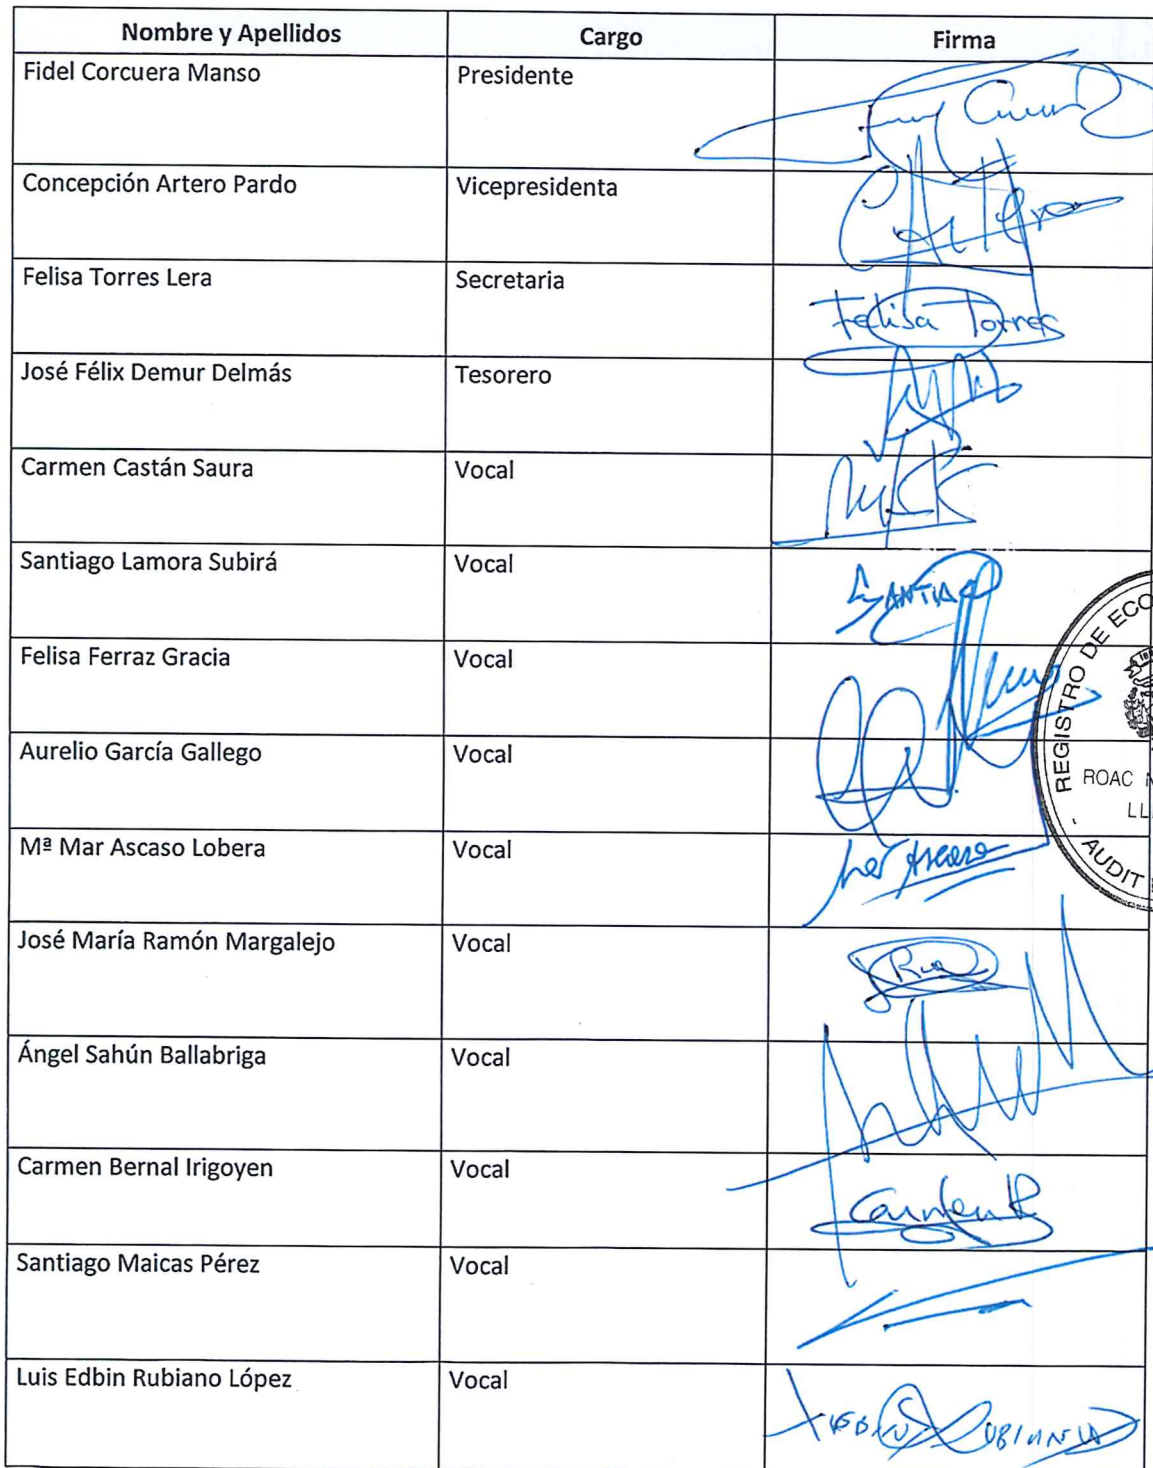 Nombre y Apellidos Cargo Firma
Fidel Corcuera Manso Presidente
Concepción Artero Pardo Vicepresidenta
Felisa Torres Lera Secretaria Felisa Torres
José Félix Demur Delmás Tesorero
Carmen Castán Saura Vocal
Santiago Lamora Subirá Vocal SANTIAGO
Felisa Ferraz Gracia Vocal
Aurelio García Gallego Vocal
Mª Mar Ascaso Lobera Vocal Mar Ascaso
José María Ramón Margalejo Vocal
Ángel Sahún Ballabriga Vocal
Carmen Bernal Irigoyen Vocal Carmen B
Santiago Maicas Pérez Vocal
Luis Edbin Rubiano López Vocal
REGISTRO DE ECO
ROAC
AUDIT